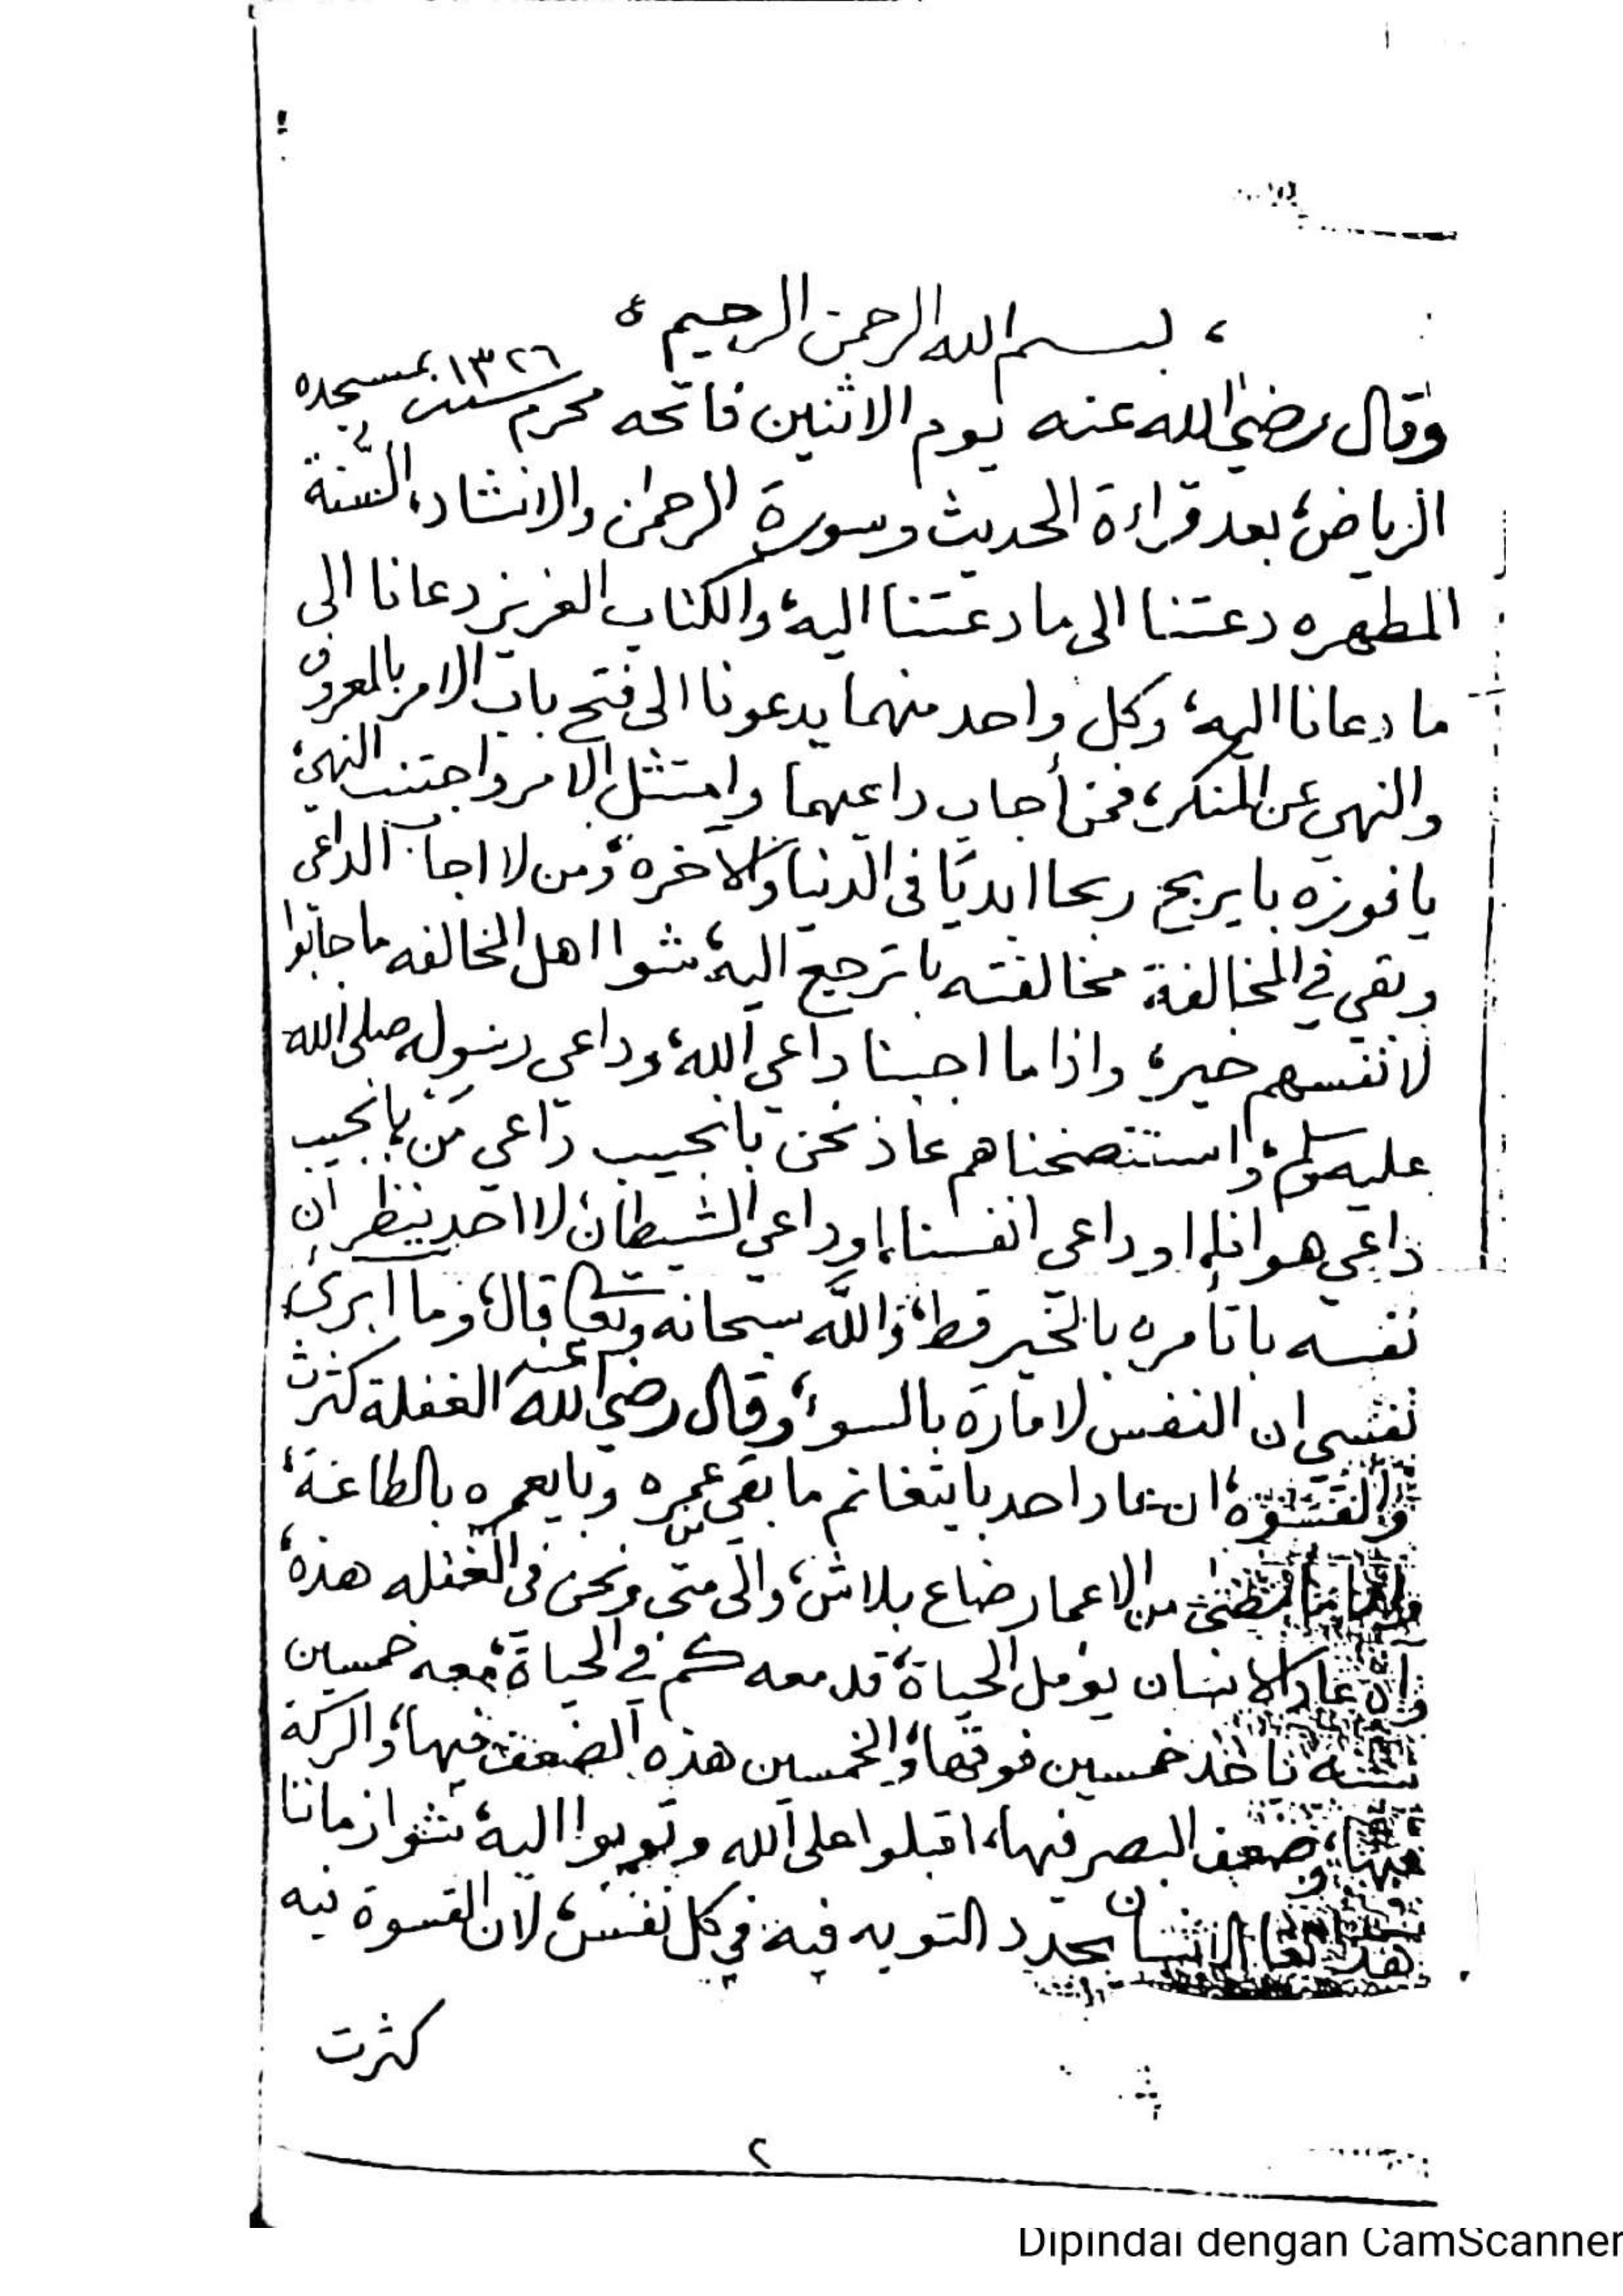 ، بسم الله الرحمن الرحيم ،
وقال رضي الله عنه يوم الاثنين فاتحه محرم سنة ١٣٢٦ بمسجده
الرياض، بعد قراءة الحديث وسورة الرحمن والانشاد، السّنة
المطهره دعتنا الى ما دعتنا اليه، والكتاب العزيز دعانا الى
ما دعانا اليه، وكل واحد منهما يدعونا الى فتح باب الامر بالمعروف
والنهي عن المنكر، فمن أجاب داعيهما وامتثل الامر واجتنب النهي،
يا فوزه با يربح ربحا ابديًا فى الدنيا والاخره، ومن لا اجاب الداعى
وبقي في المخالفة مخالفته با ترجع اليه، شوا اهل المخالفه ما جابوا
لانفسهم خير، واذا ما اجبنا داعي الله، وداعي رسوله صلى الله
عليه وسلم، واستنصخناهم عاذ نحن بانجيب داعي مَن، بانجيب
داعي هوانا، او داعى انفسنا، او داعي الشيطان، لا احد ينظر ان
نفسه با تأمره بالخير قط، والله سبحانه وتعالى قال، وما ابرئ
نفسي ان النفس لامارة بالسوء، وقال رضي الله عنه الغفلة كثرت
والقسوة، ان عاد احد بايتغانم ما بقي من عمره وبايعمره بالطاعة،
من الاعمار ضاع بلاش، والى متى ونحن فى الغفله هذه،
وان عاد الانسان يؤمل الحياة، قد معه كم في الحياة، معه خمسين
سنه باخذ خمسين فوقها، والخمسين هذه الضعف فيها، والركة
فيها، وضعف البصر فيها، اقبلوا على الله وتوبوا اليه، شوا زماننا
هذا الانسان يجدد التوبه فيه في كل نفس، لان القسوة فيه
كثرت
٢
Dipindai dengan CamScanner